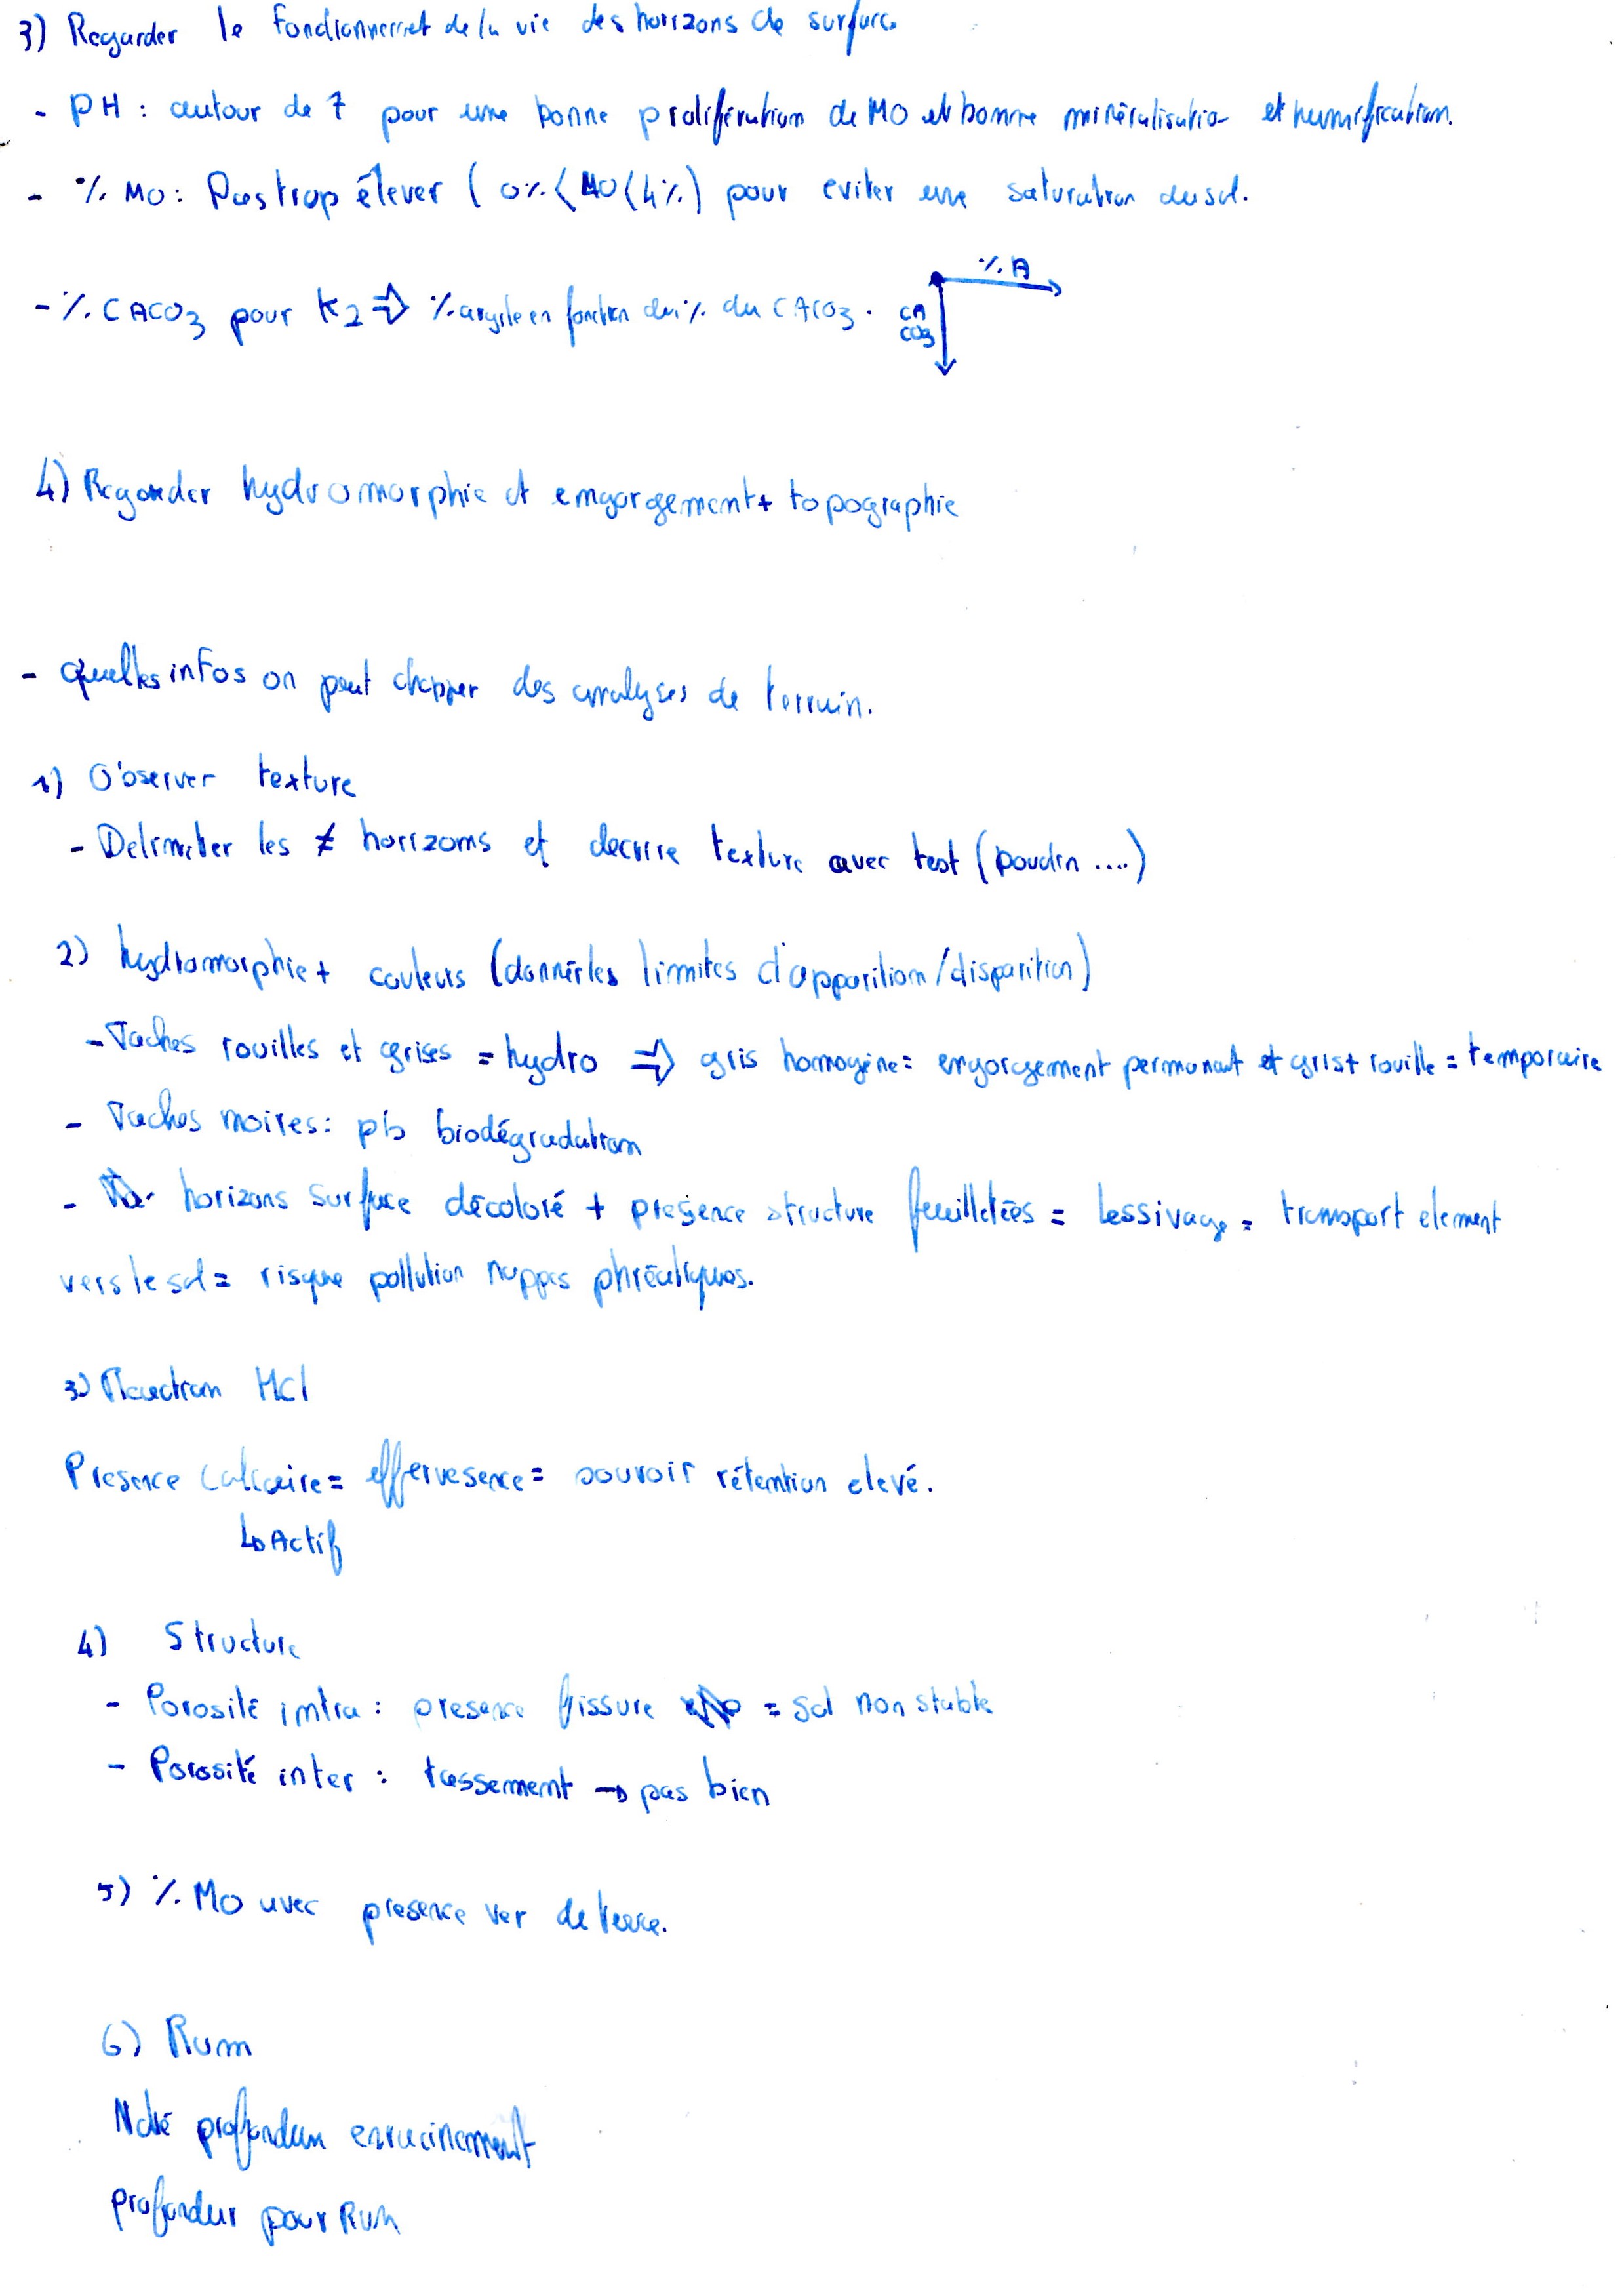 3) Regarder le fonctionnement de la vie des horizons de surface
- PH : autour de 7 pour une bonne prolifération de MO et bonne minéralisatio- et humification.
- % MO : Pas trop élever ( 0% < MO < 4%) pour eviter une saturation du sol.
- % CACO3 pour K2 ⇒ % argile en fonction du % du CACO3.
% A
CA
CO3
4) Regarder hydromorphie et engorgement + topographie
- quelles infos on peut chopper des analyses de terrain.
1) Observer texture
- Delimiter les ≠ horizons et decrire texture avec test (boudin ....)
2) hydromorphie + couleurs (donner les limites d'apparition/disparition)
- Taches rouilles et grises = hydro ⇒ gris homogène = engorgement permanant et gris + rouille = temporaire
- Taches noires : pb biodégradation
- horizons surface décoloré + presence structure feuilletées = Lessivage = transport element
vers le sol = risque pollution nappes phréatiques.
3) Reaction HCl
Presence Calcaire = effervesence = pouvoir rétention elevé.
↳ Actif
4) Structure
- Porosité intra : presence fissure = sol non stable
- Porosité inter : tassement → pas bien
5) % MO avec presence ver de terre.
6) Rum
Noté profondeur enracinement
profondeur pour Rum